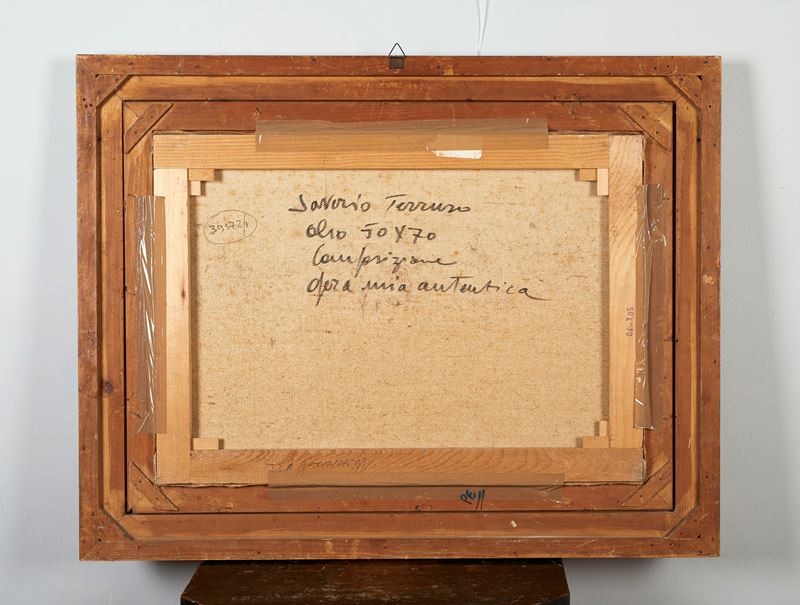 Saverio Terruso
olio 50X70
Composizione
opera mia autentica
39572/1
50X70
PE//